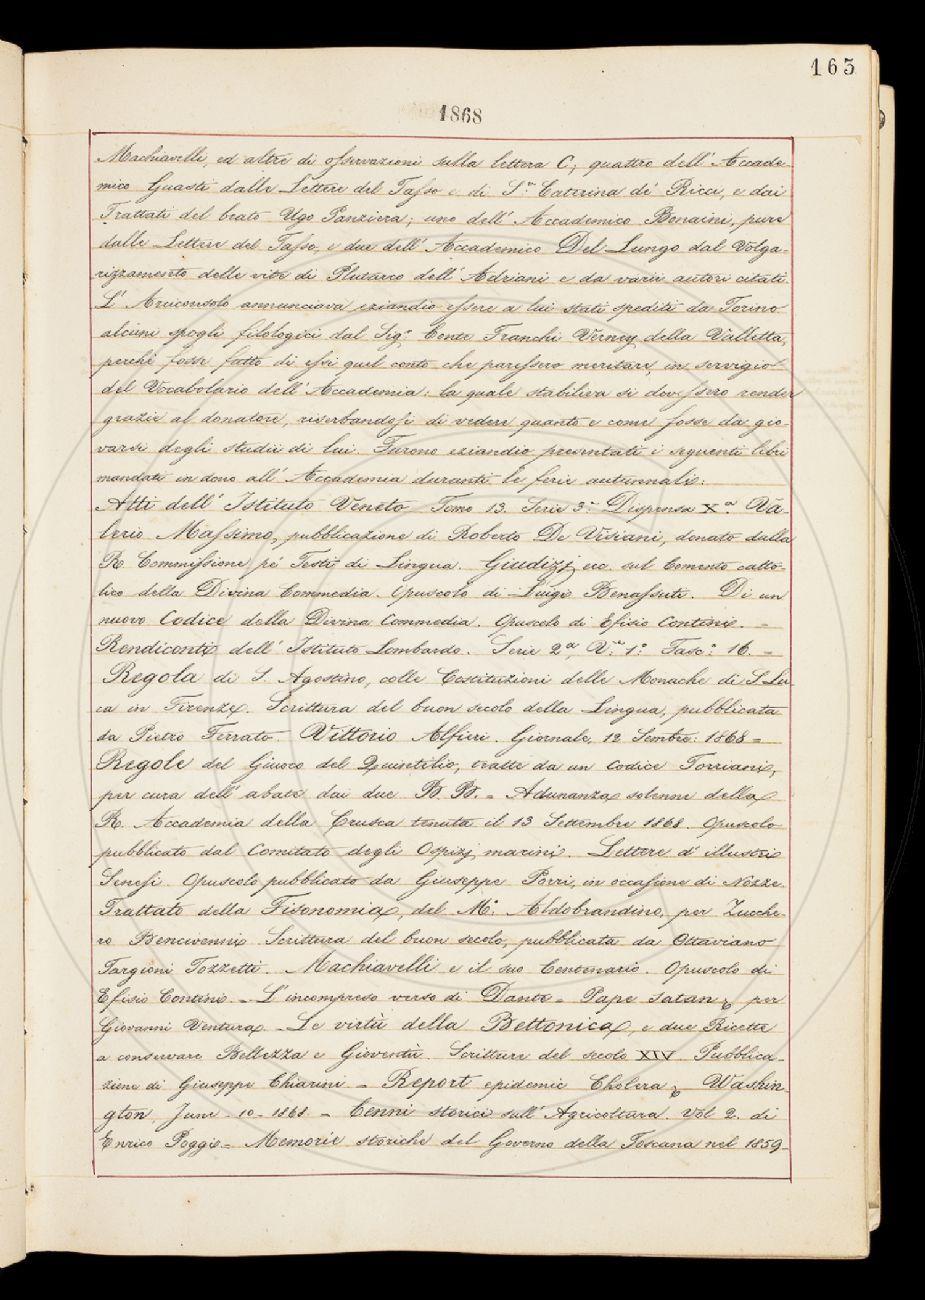 165
1868
Machiavelli, ed altre di osservazioni sulla lettera C; quattro dell'Accade-
mico Guasti dalle Lettere del Tasso e di S.ª Caterina de' Ricci, e dai
Trattati del beato Ugo Panziera; uno dell'Accademico Bonaini, pure
dalle Lettere del Tasso, e due dell'Accademico Del-Lungo dal Volga-
rizzamento delle vite di Plutarco dell'Adriani e da varii autori citati.
L'Arciconsolo annunciava eziandio essere a lui stati spediti da Torino
alcuni spogli filologici dal Sig.ʳ Conte Franchi Verney della Valletta,
perché fosse fatto di essi quel conto che paressero meritare in servigio
del Vocabolario dell'Accademia: la quale stabiliva si dovessero render
grazie al donatore, riserbandosi di vedere quanto e come fosse da gio-
varsi degli studii di lui. Furono eziandio presentati i seguenti libri
mandati in dono all'Accademia duranti le ferie autunnali:
Atti dell'Istituto Veneto Tomo 13. Serie 3.ª Dispensa X.ª Va-
lerio Massimo, pubblicazione di Roberto De Visiani, donato dalla
R. Commissione pe' Testi di Lingua. Giudizj ecc. sul Comento catto-
lico della Divina Commedia. Opuscolo di Luigi Benassuti. Di un
nuovo Codice della Divina Commedia. Opuscolo di Efisio Contini. -
Rendiconti dell'Istituto Lombardo. Serie 2ª, V.e 1.° Fasc.° 16. =
Regola di S. Agostino, colle Costituzioni delle Monache di S. Lu-
ca in Firenze. Scrittura del buon secolo della Lingua, pubblicata
da Pietro Ferrato - Vittorio Alfieri. Giornale, 12 Sembre: 1868 =
Regole del Giuoco del Quintilio, tratte da un Codice Torriani,
per cura dell'abate dai due B. B. = Adunanza solenne della
R. Accademia della Crusca tenuta il 13 Settembre 1868. Opuscolo
pubblicato dal Comitato degli Ospizj marini. Lettere d'illustri
Senesi. Opuscolo pubblicato da Giuseppe Porri, in occasione di Nozze.
Trattato della Fisonomia, del M.° Aldobrandino, per Zucche-
ro Bencivenni. Scrittura del buon secolo, pubblicata da Ottaviano
Targioni Tozzetti. Machiavelli e il suo Centenario. Opuscolo di
Efisio Contini. - L'incompreso verso di Dante = Pape Satan, per
Giovanni Ventura. - Le virtù della Bettonica, e due Ricette
a conservare Bellezza e Gioventù. Scritture del secolo XIV Pubblica-
zione di Giuseppe Chiarini = Report epidemic Cholera, Washin
gton, June - 10 - 1868. = Cenni storici sull'Agricoltura. Vol 2. di
Enrico Poggi = Memorie storiche del Governo della Toscana nel 1859-